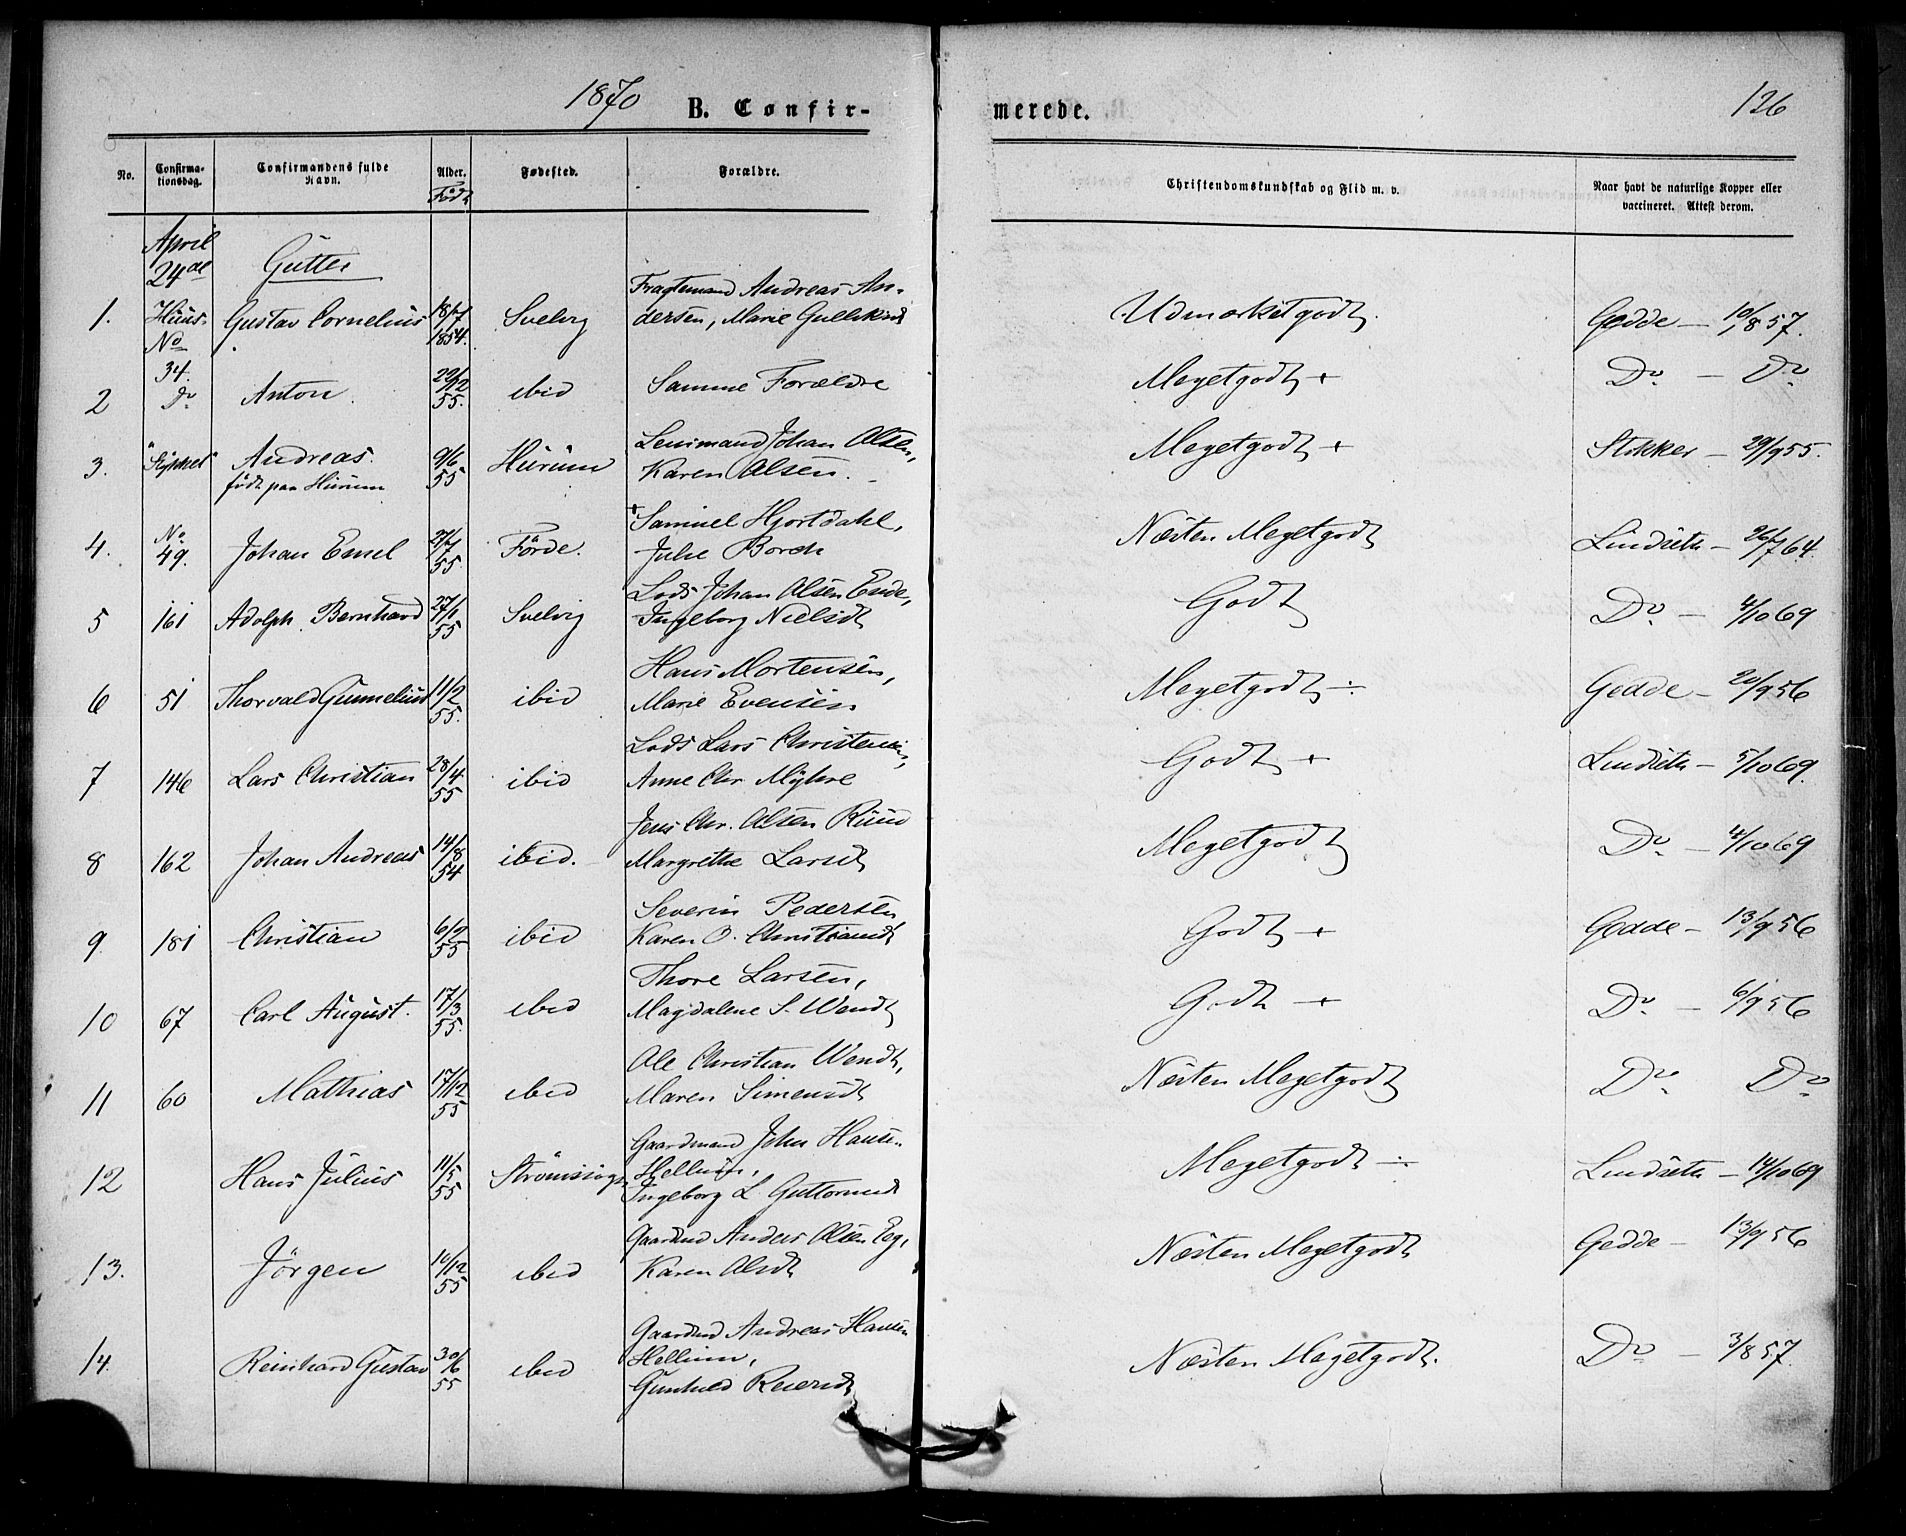 1870 B. Confir- merede. 126
No. Confirma-tionsdag. Confirmandens fulde Navn. Alder. Født Fødested. Forældre. Christendomskundskab og Flid m. v. Naar havt de naturlige Kopper eller vaccineret. Attest derom.
April 24de Gutter
1. Huus-No 34. Gustav Cornelius 18/7 1854. Svelvig Fragtemand Andreas Andersen, Marie Gulliksd Udmærketgodt. Gedde — 10/8 57.
2 Do Anton. 29/12 55. ibid Samme Forældre Megetgodt + Do — Do
3. Andreas. født paa Hurum 9/6 55 Hurum Lensmand Johan Olsen, Karen Olsen. Megetgodt + Stokker — 29/9 55.
4. No 49. Johan Emil 27/7 55 Förde. + Samuel Hjortdahl, Julie Borch Næsten Megetgodt Lindseth — 26/7 64.
5 161 Adolph Bernhard 27/1 55 Svelvig Lods Johan Olsen Eide, Ingeborg Nielsdt Godt Do — 4/10 69
6 51 Thorvald Gunnelius 11/2 55. ibid Hans Mortensen, Marie Evensen Megetgodt ÷ Gedde — 20/9 56
7 146 Lars Christian 28/4 55 ibid Lods Lars Christensen, Anne Chr. Myhre Godt + Lindseth — 5/10 69.
8 162 Johan Andreas 14/8 54 ibid. Jens Chr. Olsen Ruud Margrethe Larsdt Megetgodt Do — 4/10 69
9. 181 Christian 6/2 55 ibid Severin Pedersen Karen O. Christiansdt Godt + Gedde — 13/9 56
10 67 Carl August. 17/3 55. ibid Thore Larsen, Magdalene S. Wendt Godt + Do — 6/9 56
11 60 Mathias 17/12 55 ibid Ole Christian Wendt, Maren Simensdt Næsten Megetgodt Do Do
12 Hans Julius 11/5 55 Strömssogn Gaardmand John Hansen Hellum, Ingeborg L Guttormsd Megetgodt ÷ Lindseth — 14/10 69
13. Jörgen 10/12 55 ibid Gaardmd Anders Olsen Eeg, Karen Olsdt Næsten Megetgodt Gedde — 13/9 56
14. Reinhard Gustav 30/6 55 ibid Gaardmd Andreas Hansen Hellum, Gunhild Reiersdt Næsten Megetgodt. Do — 3/8 57.